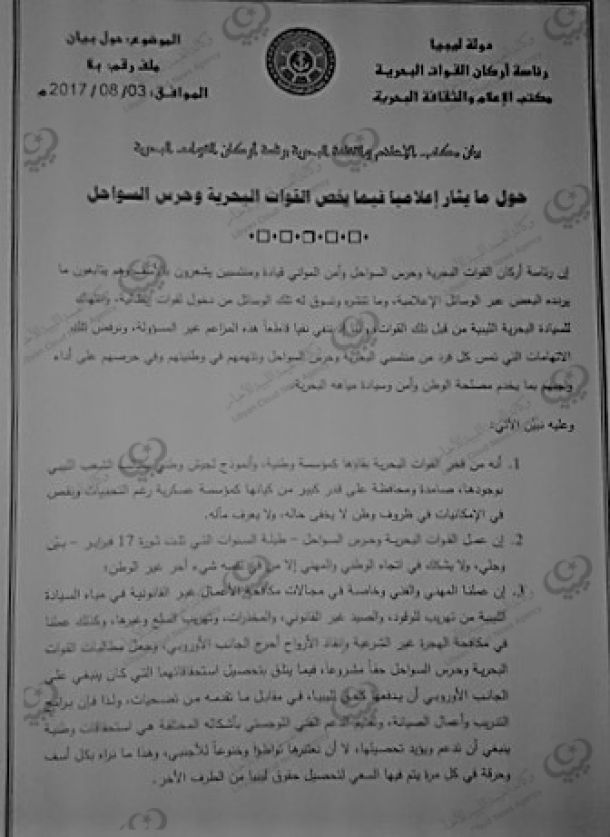 دولة ليبيا
رئاسة أركان القوات البحرية
مكتب الإعلام والثقافة البحرية
الموضوع: حول بيان
ملف رقم: بلا
الموافق: 2017/08/03م
بيان مكتب الإعلام والثقافة البحرية برئاسة أركان القوات البحرية
حول ما يثار إعلاميا فيما يخص القوات البحرية وحرس السواحل
إن رئاسة أركان القوات البحرية وحرس السواحل وأمن الموانئ قيادة ومنتسبين يشعرون بالأسف وهم يتابعون ما
يردده البعض عبر الوسائل الإعلامية، وما تنشره وتسوق له تلك الوسائل من دخول لقوات إيطالية، وانتهاك
للسيادة البحرية الليبية من قبل تلك القوات، وإننا إذ ننفي نفيا قاطعا هذه المزاعم غير المسؤولة، ونرفض تلك
الاتهامات التي تمس كل فرد من منتسبي البحرية وحرس السواحل وتتهمهم في وطنيتهم وفي حرصهم على أداء
واجبهم بما يخدم مصلحة الوطن وأمن وسيادة مياهه البحرية.
وعليه نبيّن الآتي:
1. أنه من فخر القوات البحرية بقاؤها كمؤسسة وطنية، وأنموذج لجيش وطني الشعب الليبي
بوجودها، صامدة ومحافظة على قدر كبير من كيانها كمؤسسة عسكرية رغم التحديات ونقص
في الإمكانيات في ظروف وطن لا يخفى حاله، ولا يعرف مآله.
2. إن عمل القوات البحرية وحرس السواحل – طيلة السنوات التي تلت ثورة 17 فبراير – بيّن
وجلي، ولا يشكك في اتجاه الوطني والمهني إلا من في نفسه شيء آخر غير الوطن؛
3. إن عملنا المهني والفني وخاصة في مجالات مكافحة الأعمال غير القانونية في مياه السيادة
الليبية من تهريب للوقود، والصيد غير القانوني، والمخدرات، وتهريب السلع وغيرها، وكذلك عملنا
في مكافحة الهجرة غير الشرعية وانقاذ الأرواح أحرج الجانب الأوروبي، وجعل مطالبات القوات
البحرية وحرس السواحل حقاً مشروعاً، فيما يتلق بتحصيل استحقاقاتهما التي كان ينبغي على
الجانب الأوروبي أن يدفعها كحق لليبيا، في مقابل ما تقدمه من تضحيات، ولذا فإن برامج
التدريب وأعمال الصيانة، وتقديم الدعم الفني اللوجستي بأشكاله المختلفة هي استحقاقات وطنية
ينبغي أن تدعم ويؤيد تحصيلها، لا أن نعتبرها تواطؤا وخنوعاً للأجنبي، وهذا ما نراه بكل أسف
وحرقة في كل مرة يتم فيها السعي لتحصيل حقوق ليبيا من الطرف الآخر.